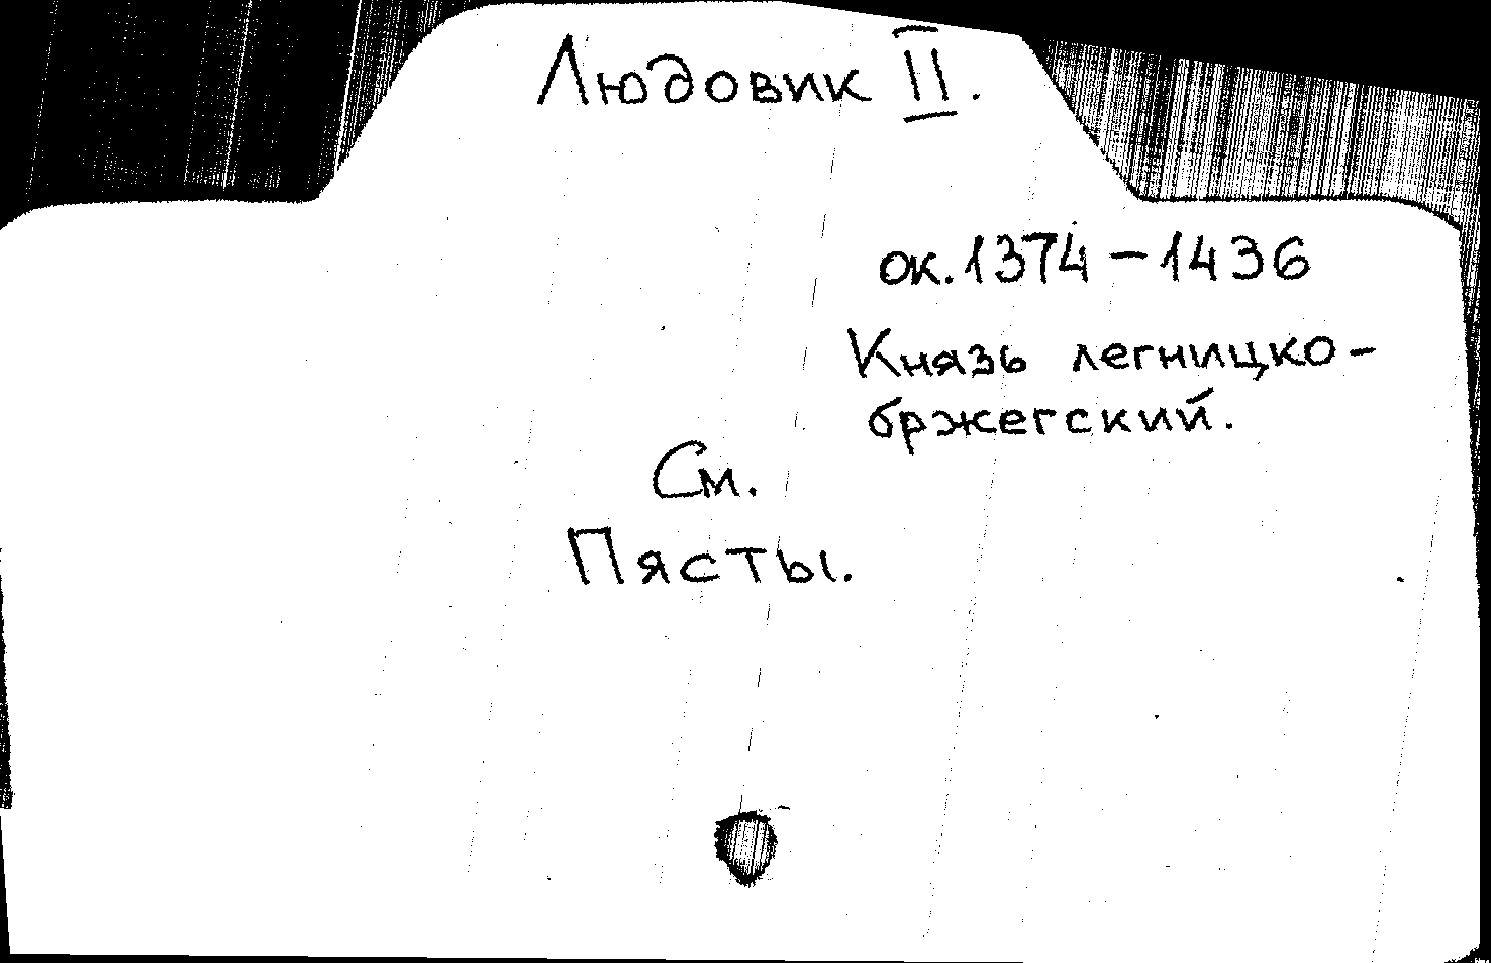 Людовик II.
ок. 1374 – 1436
Князь легницко-
бржегский.
См.
Пясты.